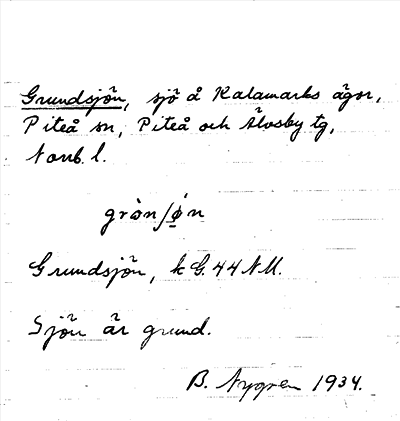 Grundsjön, sjö å Kalamarks ägor,
Piteå sn, Piteå och Älvsby tg,
Norrb. l.
Grundsjön, k G. 44 N M.
Sjön är grund.
B. Nygren 1934.